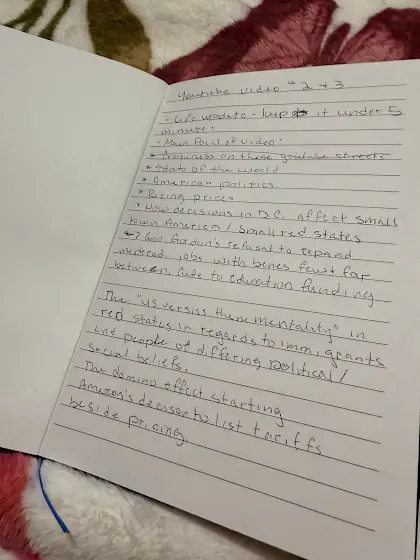 Youtube video # 2 + 3
- Life update - keep it under 5
minutes!
- Main Point of video:
* Crazyness on these youtube streets
* State of the world
* American politics
* Rising prices
* How decisions in D.C. affect small
town America / small red states
-> Gov. Gordon's refusal to expand
medicaid, jobs with benes few + far
between. Cuts to education funding
The "us versus them mentality" in
red states in regards to immigrants
and people of differing political /
social beliefs.
The domino effect starting
Amazon's decision to list tariffs
beside pricing.